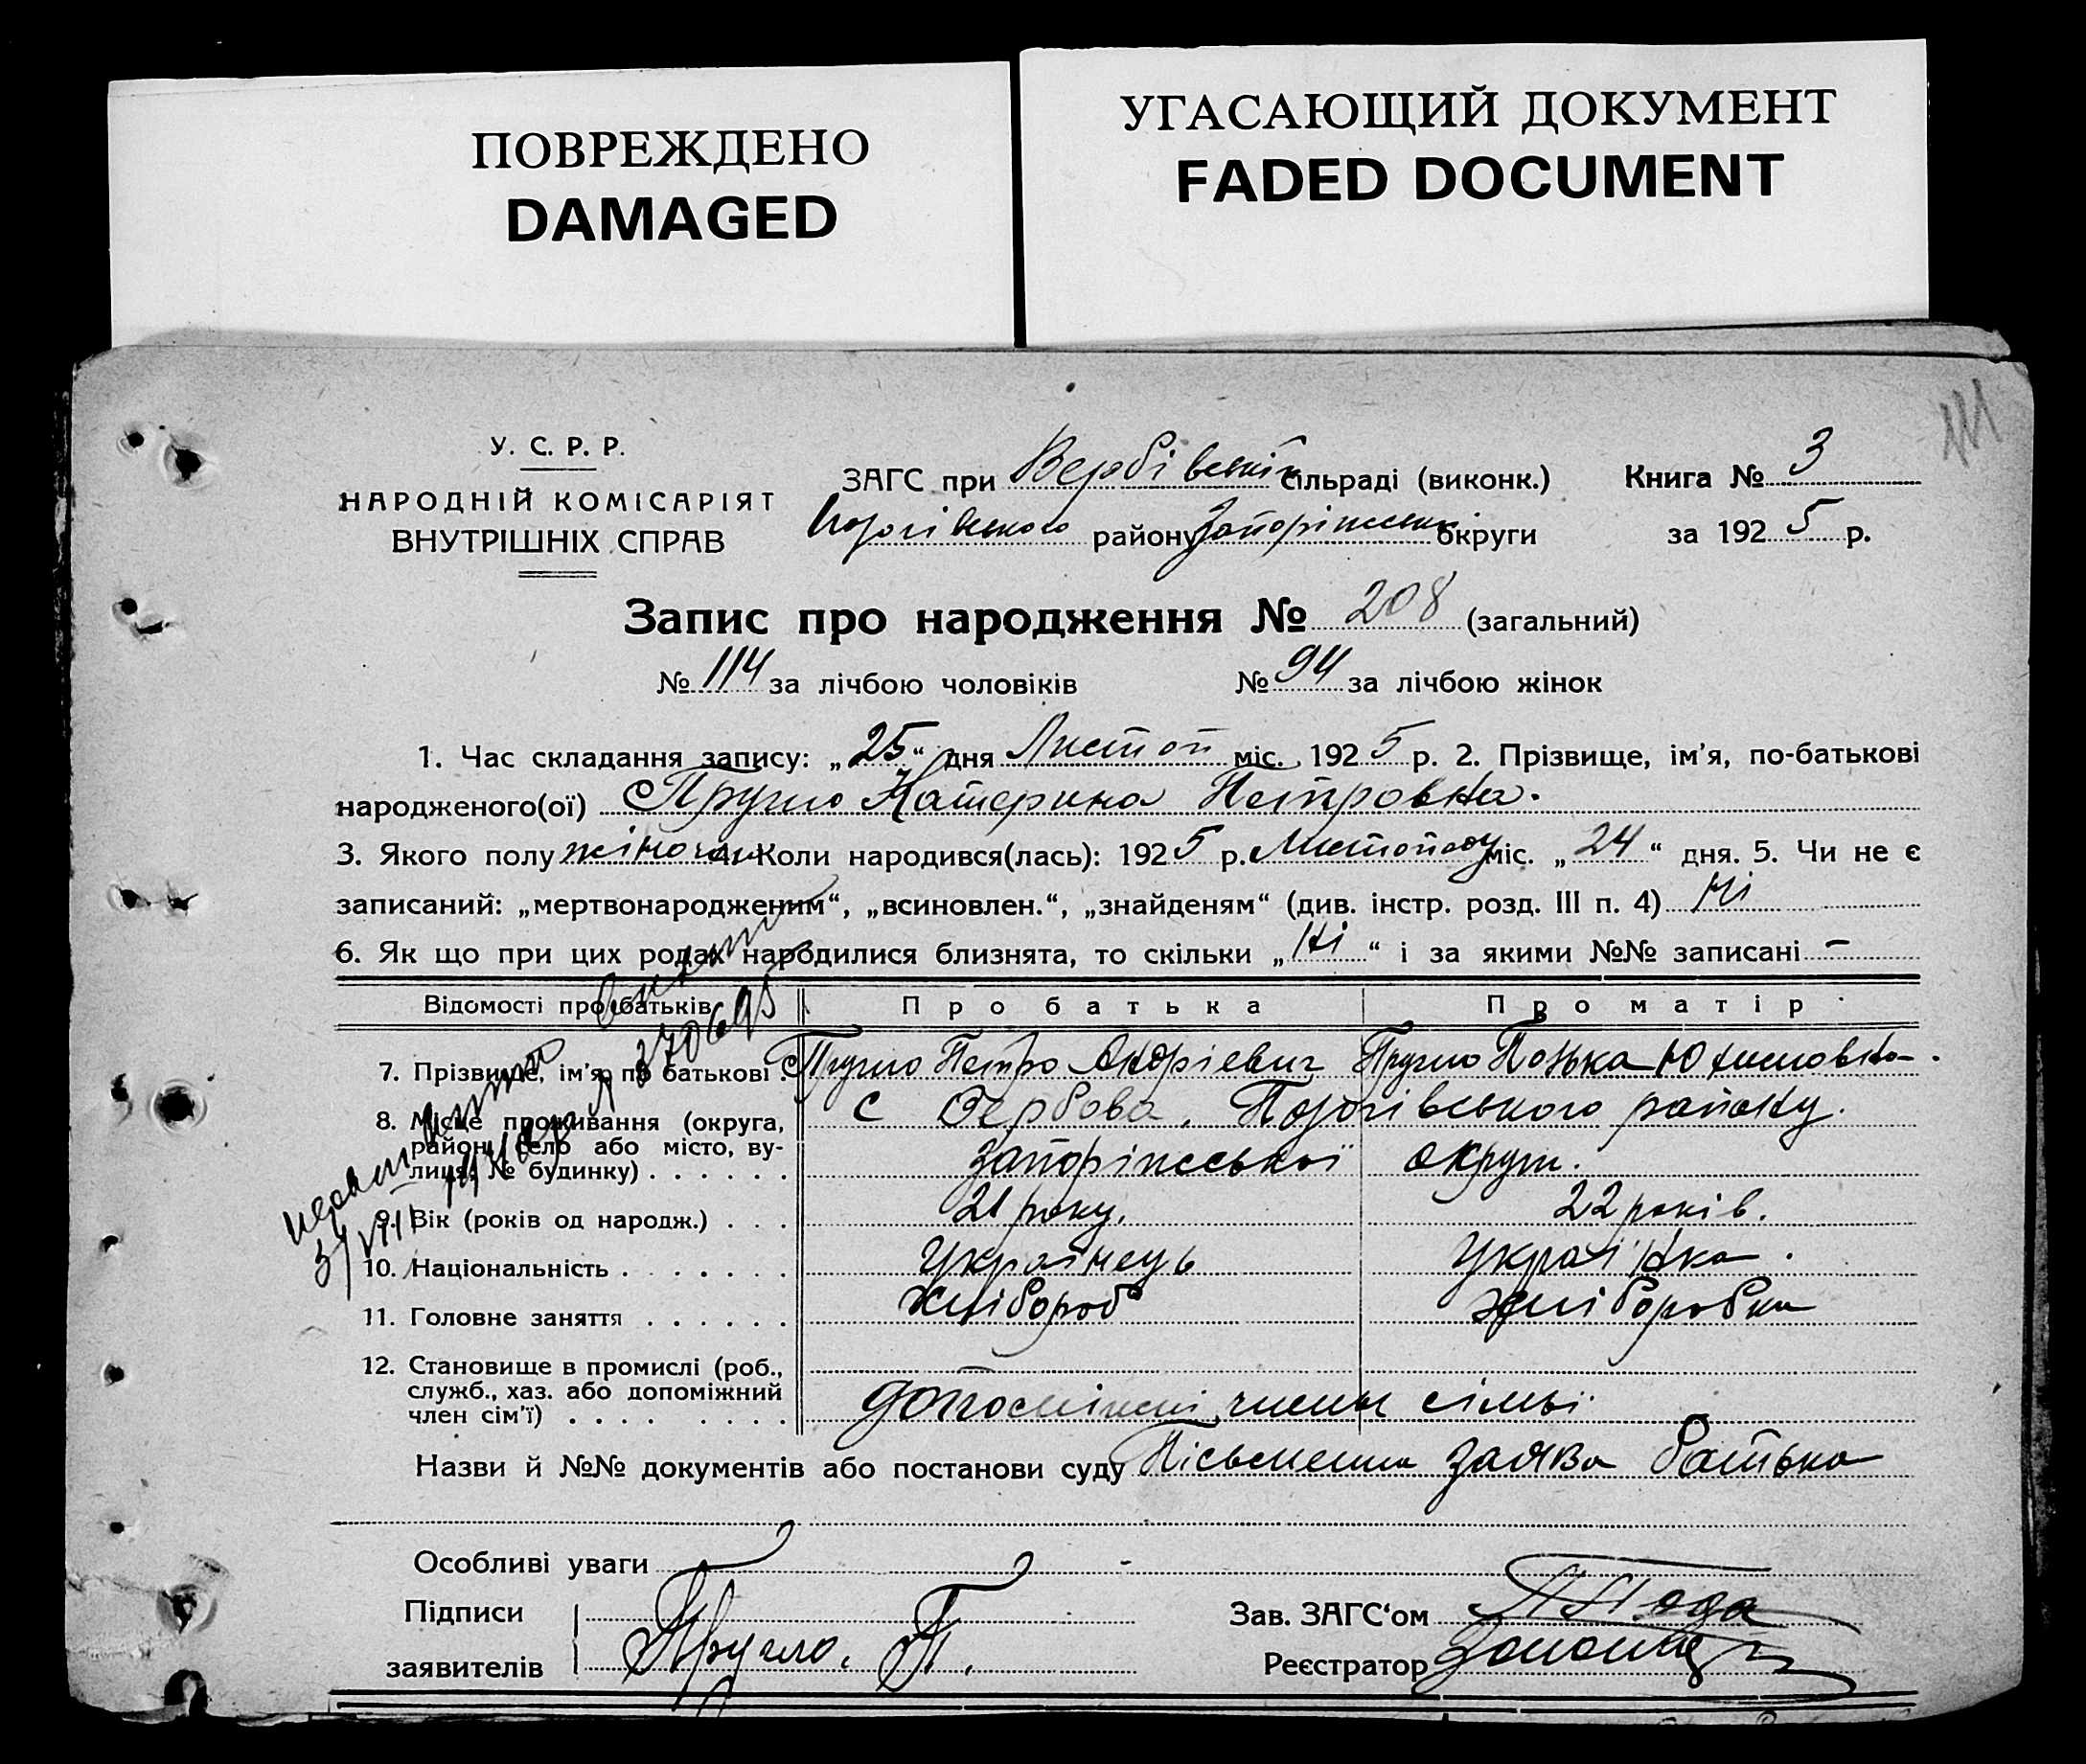 ПОВРЕЖДЕНО
DAMAGED
УГАСАЮЩИЙ ДОКУМЕНТ
FADED DOCUMENT
У. С. Р. Р.
НАРОДНІЙ КОМІСАРІЯТ
ВНУТРІШНІХ СПРАВ
ЗАГС при Вербівській сільраді (виконк.) Книга № 3
району Запоріжської округи за 1925 р.
Запис про народження № 208 (загальний)
№ 114 за лічбою чоловіків № 94 за лічбою жінок
1. Час складання запису: „25“ дня Листоп міс. 1925 р. 2. Прізвище, ім'я, по-батькові
народженого(ої) Катерина Петровна.
3. Якого полу жіночи 4. Коли народився(лась): 1925 р. Листопаду міс. „24“ дня. 5. Чи не є
записаний: „мертвонародженим“, „всиновлен.“, „знайденям“ (див. інстр. розд. III п. 4) Ні
6. Як що при цих родах народилися близнята, то скільки „Ні“ і за якими №№ записані –
Відомості про батьків Про батька Про матір
7. Прізвище, ім'я, по батькові . Петро Андріевич Юхимовна.
8. Місце проживання (округа, с Вербова, Пологівського району.
район, село або місто, ву-
лиця, № будинку) . . . . . . Запоріжської округи.
9. Вік (років од народж.) . . . 21 року. 22 років.
10. Національність . . . . . . . Українець Українка.
11. Головне заняття . . . . . . Хлібороб хліборобка
12. Становище в промислі (роб.,
служб., хаз. або допоміжний
член сім'ї) . . . . . . . . допоміжні члени сімьї
Назви й №№ документів або постанови суду Пісьменна заява батька
Особливі уваги -
Підписи
заявителів П.
Зав. ЗАГС'ом
Реєстратор